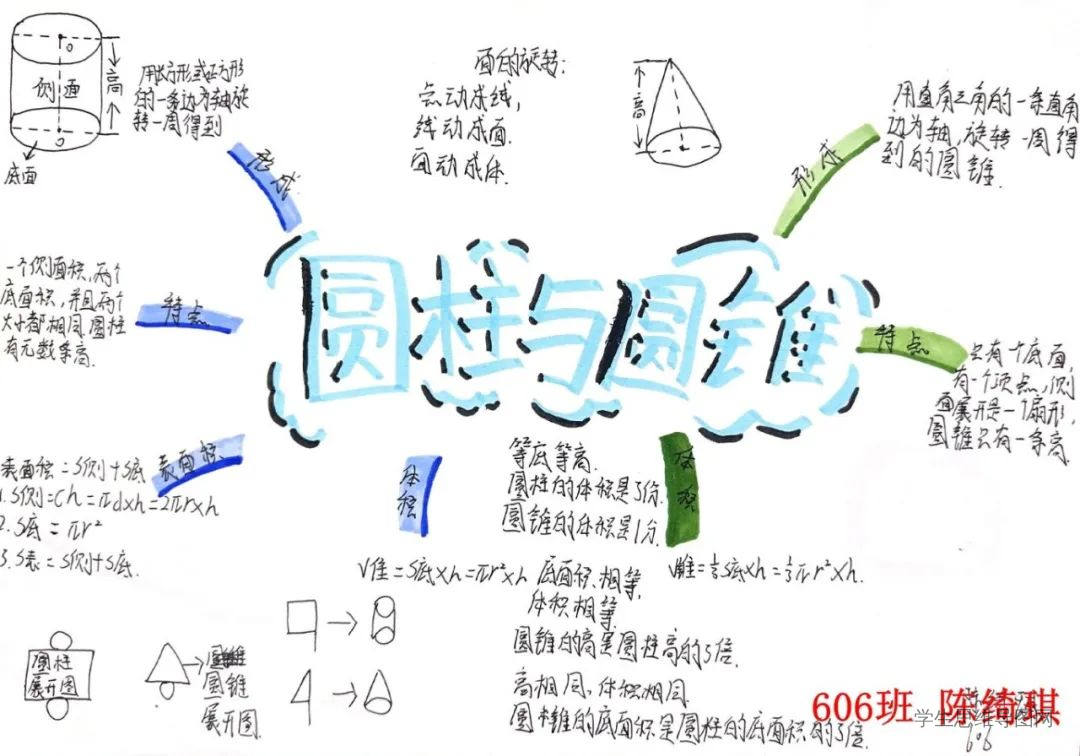 侧面
高
底面
用长方形或正方形
的一条边为轴旋
转一周得到
形成
面的旋转:
点动成线,
线动成面.
面动成体.
高
形成
用直角三角的一条直角
边为轴,旋转一周得
到的圆锥.
圆柱与圆锥
特点
一个侧面积,两个
底面积,并且两个
大小都相同.圆柱
有无数条高.
特点
只有个底面,
有一个顶点,侧
面展开是一个扇形,
圆锥只有一条高.
表面积
表面积=S侧+S底
1.S侧=Ch=πd×h=2πr×h
2.S底=πr²
3.S表=S侧+S底.
体积
V=S底×h=πr²×h
等底等高.
圆柱的体积是3份.
圆锥的体积是1分.
体积
V锥=⅓S底×h=⅓πr²×h.
底面积相等,
体积相等.
圆锥的高是圆柱高的3倍.
高相同,体积相同
圆锥的底面积是圆柱的底面积的3倍.
圆柱
展开图
圆锥
展开图.
606班 陈绮琪
学生思维导图网
606